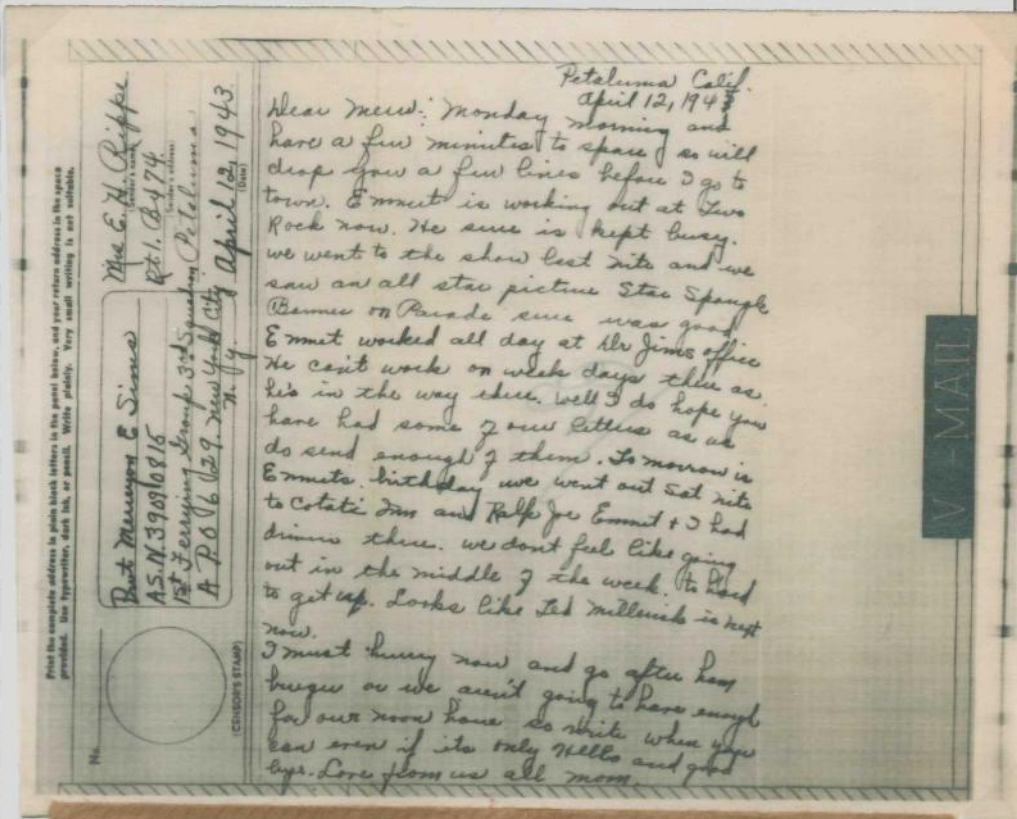 Print the complete address in plain block letters in the panel below, and your return address in the space
provided. Use typewriter, dark ink, or pencil. Write plainly. Very small writing is not suitable.
No.
(CENSOR'S STAMP)
Pvt Mervyn E Sims
A.S.N. 390910815
1st Ferrying Group 3rd Squadron
A P.O 6 29. New York City
N. Y.
Mrs E. H. Rippe
(Sender's name)
Rt 1. Bx 74.
(Sender's address)
Petaluma
April 12, 1943
(Date)
Petaluma Calif.
April 12, 1943
Dear Merv: Monday morning and
have a few minutes to spare so will
drop you a few lines before I go to
town. Emmet is working out at Two
Rock now. He sure is kept busy.
we went to the show last nite and we
saw an all star picture Star Spangle
Banner on Parade sure was good
Emmet worked all day at Dr Jims office
He can't work on week days there as
he's in the way there. Well I do hope you
have had some of our letters as we
do send enough of them. To morrow is
Emmets birthday we went out Sat nite
to Cotati Inn and Ralf Joe Emmet + I had
dinner there. we dont feel like going
out in the middle of the week. to hard
to get up. Looks like Ted is next
now.
I must hurry now and go after ham
burger or we aren't going to have enough
for our noon house so write when you
can even if its only Hello and good
bye. Love from us all mom.
V-MAIL